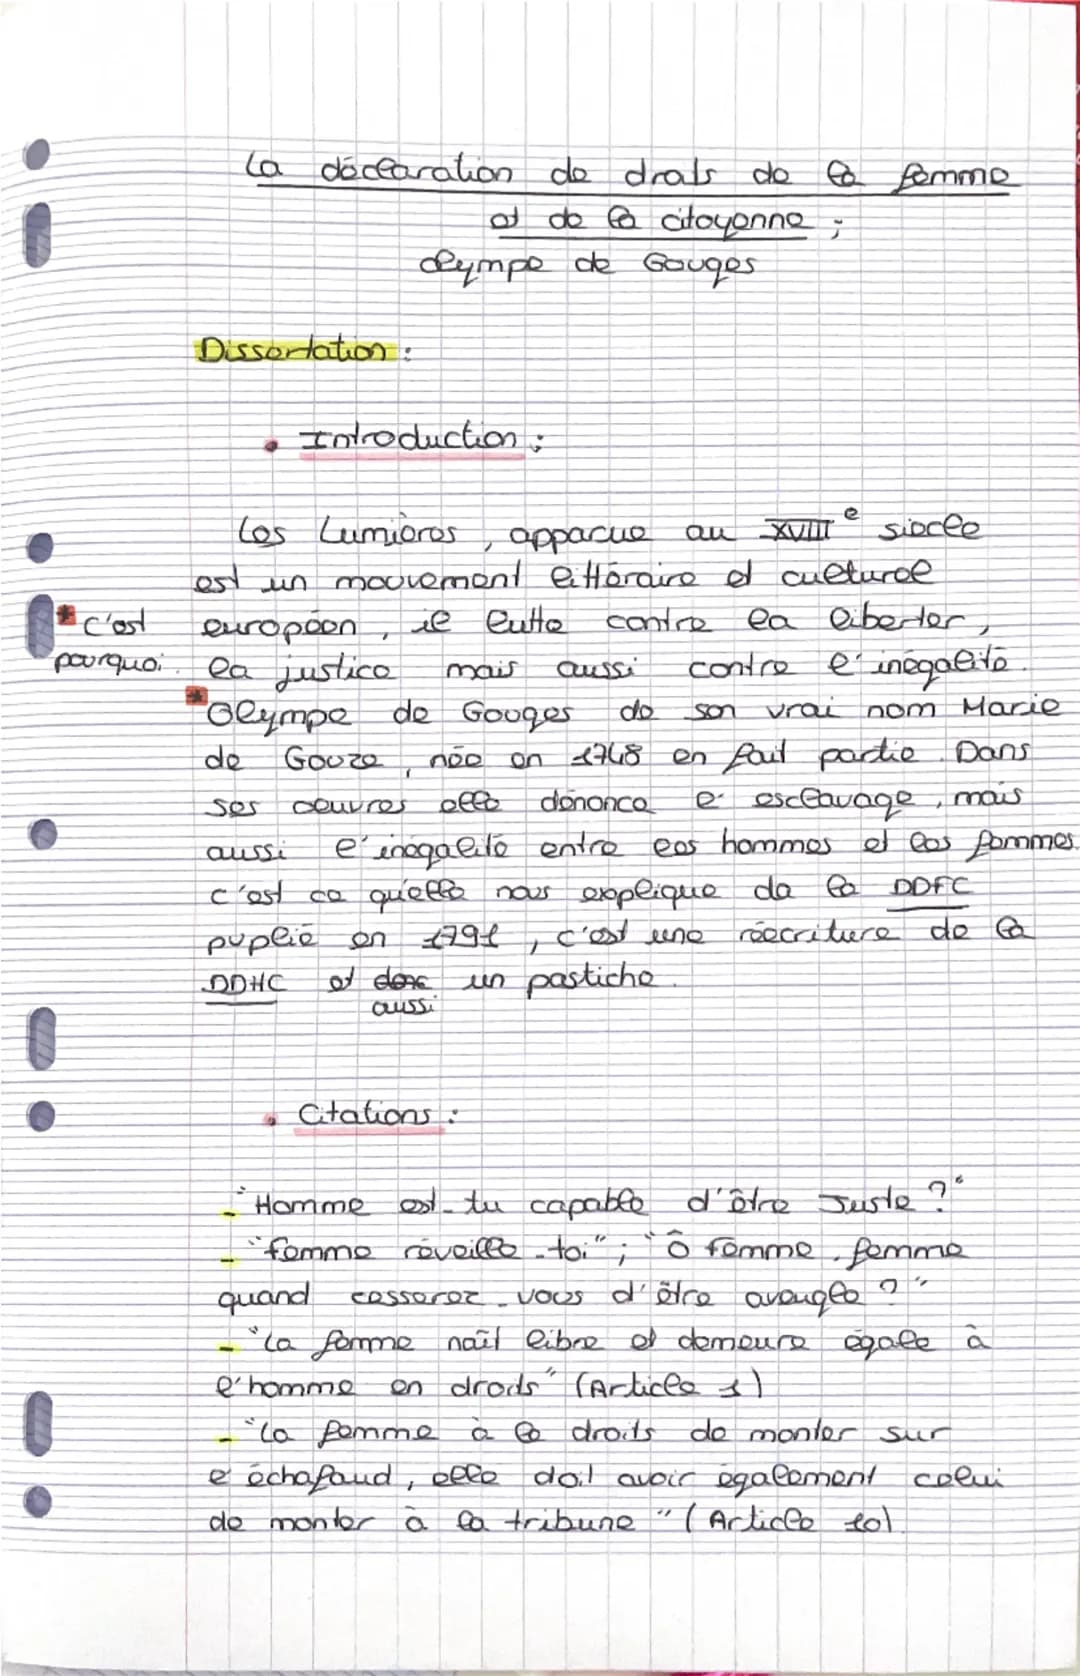 La déclaration de droits de la femme
et de la citoyenne ;
Olympe de Gouges
Dissertation :
• Introduction :
Les Lumières, apparue au XVIIIe siècle
est un mouvement littéraire et culturel
européen, il lutte contre la liberter,
* c'est pourquoi
la justice mais aussi contre l'inégalité.
* Olympe de Gouges de son vrai nom Marie
de Gouze, née en 1748 en fait partie. Dans
ses œuvres elle dénonce l'esclavage, mais
aussi l'inégalité entre les hommes et les femmes.
C'est ce qu'elle nous explique da la DDFC
puplié en 1791, c'est une réécriture de la
DDHC et donc un pastiche.
aussi
• Citations :
- "Homme est-tu capable d'être Juste ?"
- "femme réveille-toi" ; "Ô femme, femme
quand cesserez-vous d'être aveugle ?"
- "La femme naît libre et demeure égale à
l'homme en droits" (Article 1)
- "La femme à le droits de monter sur
l'échafaud, elle doit avoir également celui
de monter à la tribune" (Article 10).